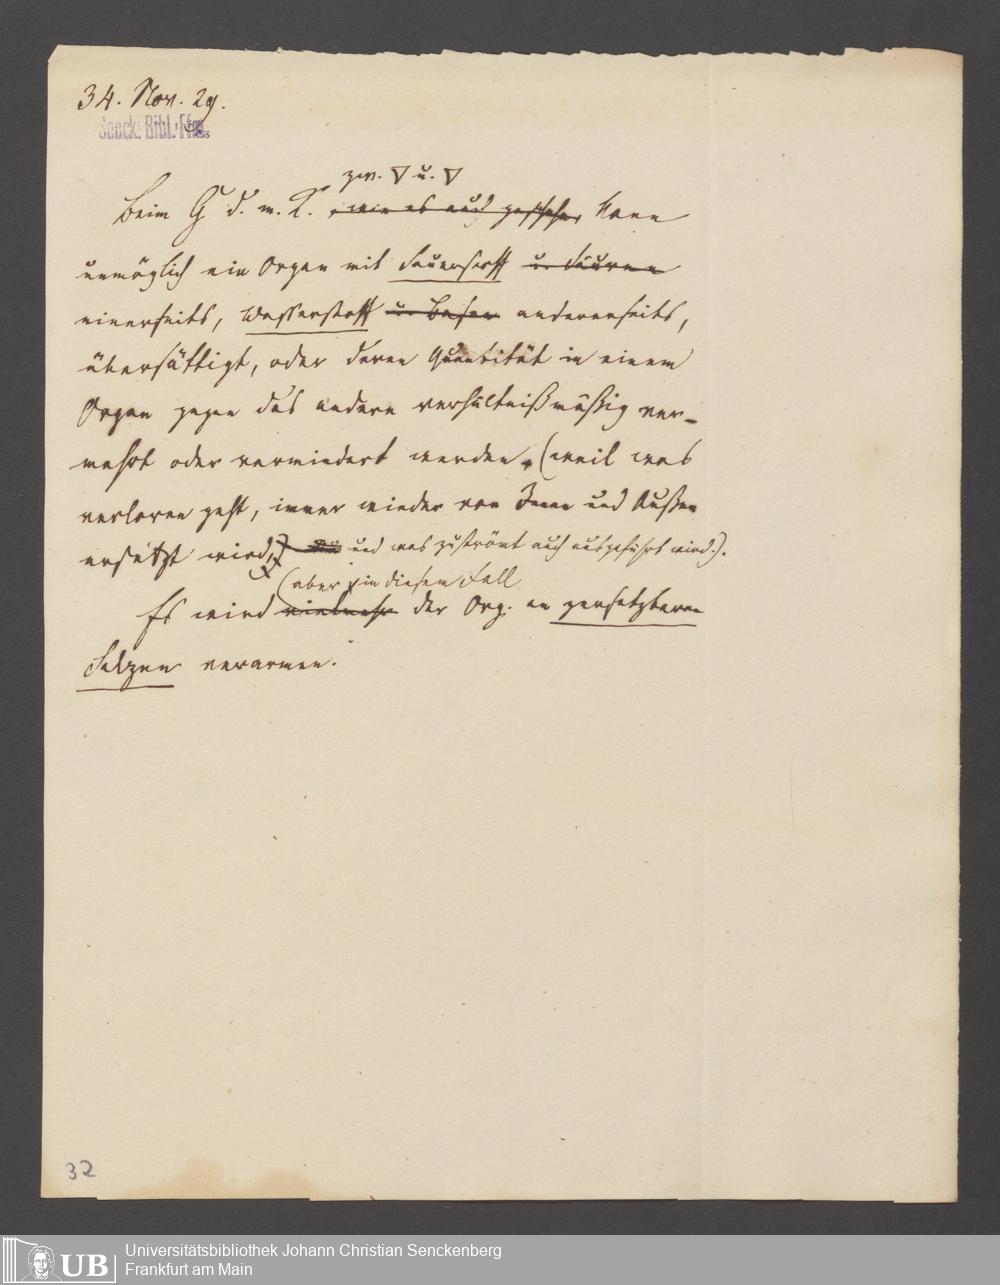 34. Nov. 29.
Senck. Bibl. Ffm.
zw. ▽ u. ▽
Beim G d. m. L. , wie es auch geschehe, kann
unmöglich ein Organ mit Sauerstoff u. Säuren
einerseits, Wasserstoff u. Basen andererseits,
übersättigt, oder deren Quantität in einem
Organ gegen das andere verhältnißmäßig ver-
mehrt oder vermindert werden, (weil was
verloren geht, immer wieder von Innen und Außen
ersetzt wird,) und was zuströmt auch ausgeführt wird.).
(aber in diesem Fall
Es wird vielmehr der Org. an zersetzbaren
Salzen verarmen.
32
UB
Universitätsbibliothek Johann Christian Senckenberg
Frankfurt am Main